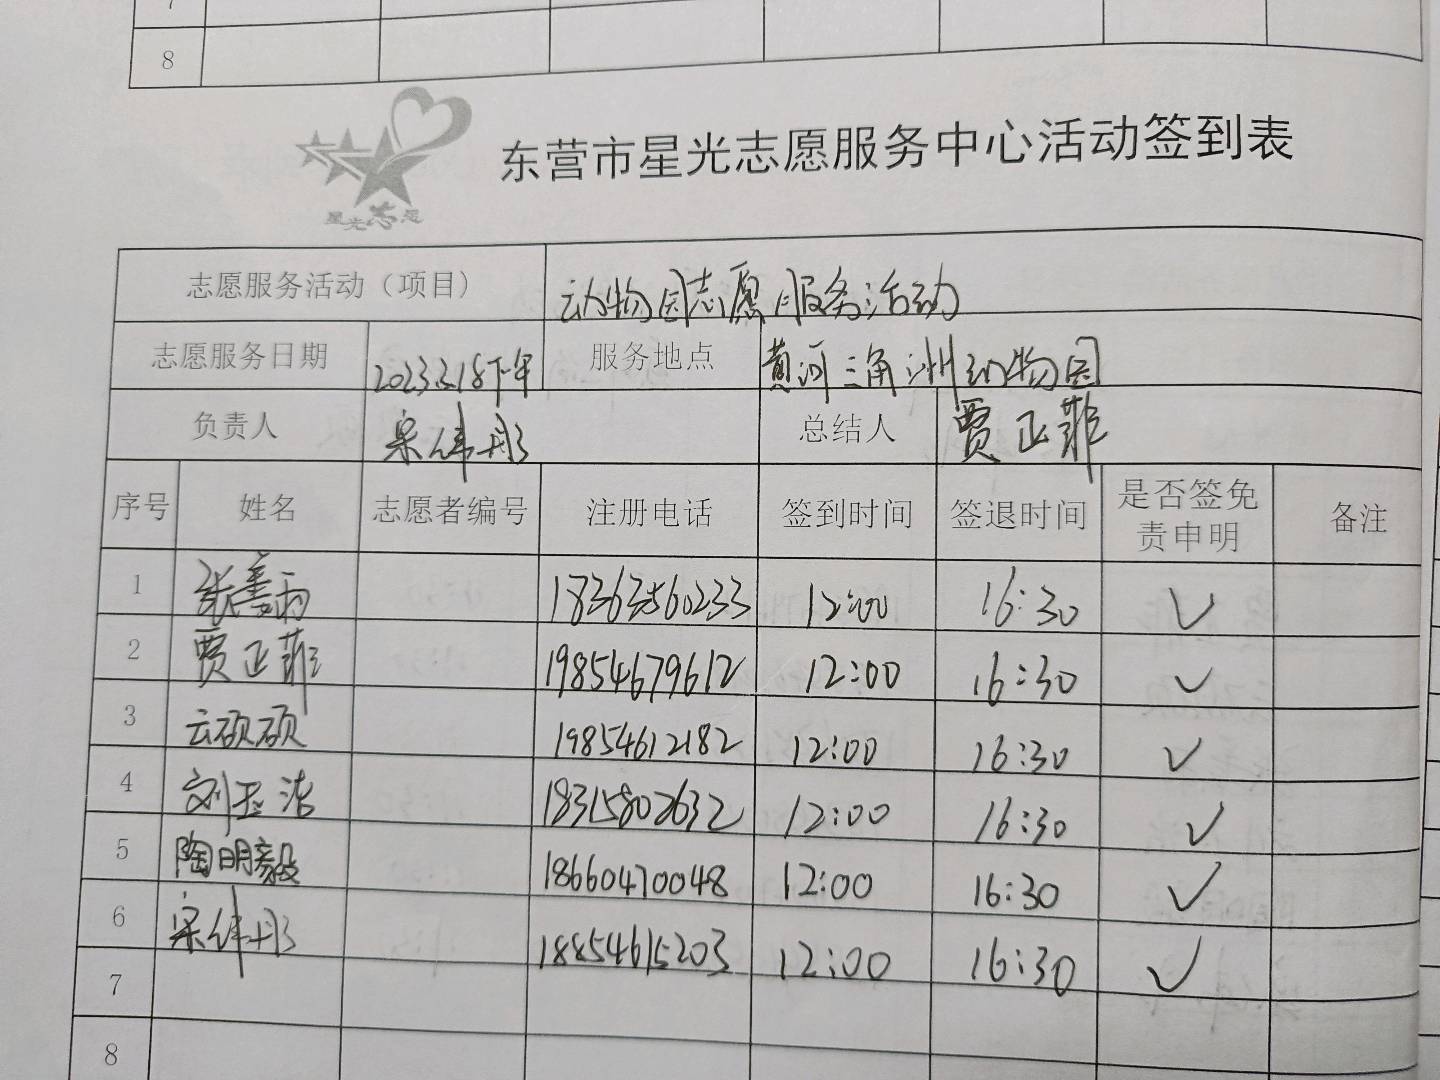 7
8
星光志愿
东营市星光志愿服务中心活动签到表
志愿服务活动（项目） 动物园志愿服务活动
志愿服务日期 2023.2.18下午 服务地点 黄河三角洲动物园
负责人 宋伟彤 总结人 贾正菲
序号 姓名 志愿者编号 注册电话 签到时间 签退时间 是否签免责申明 备注
1 张善雨 18363560233 12:00 16:30 ✓
2 贾正菲 19854679612 12:00 16:30 ✓
3 云硕硕 19854612182 12:00 16:30 ✓
4 刘玉洁 18315802632 12:00 16:30 ✓
5 陶明毅 18660470048 12:00 16:30 ✓
6 宋伟彤 18854615203 12:00 16:30 ✓
7
8